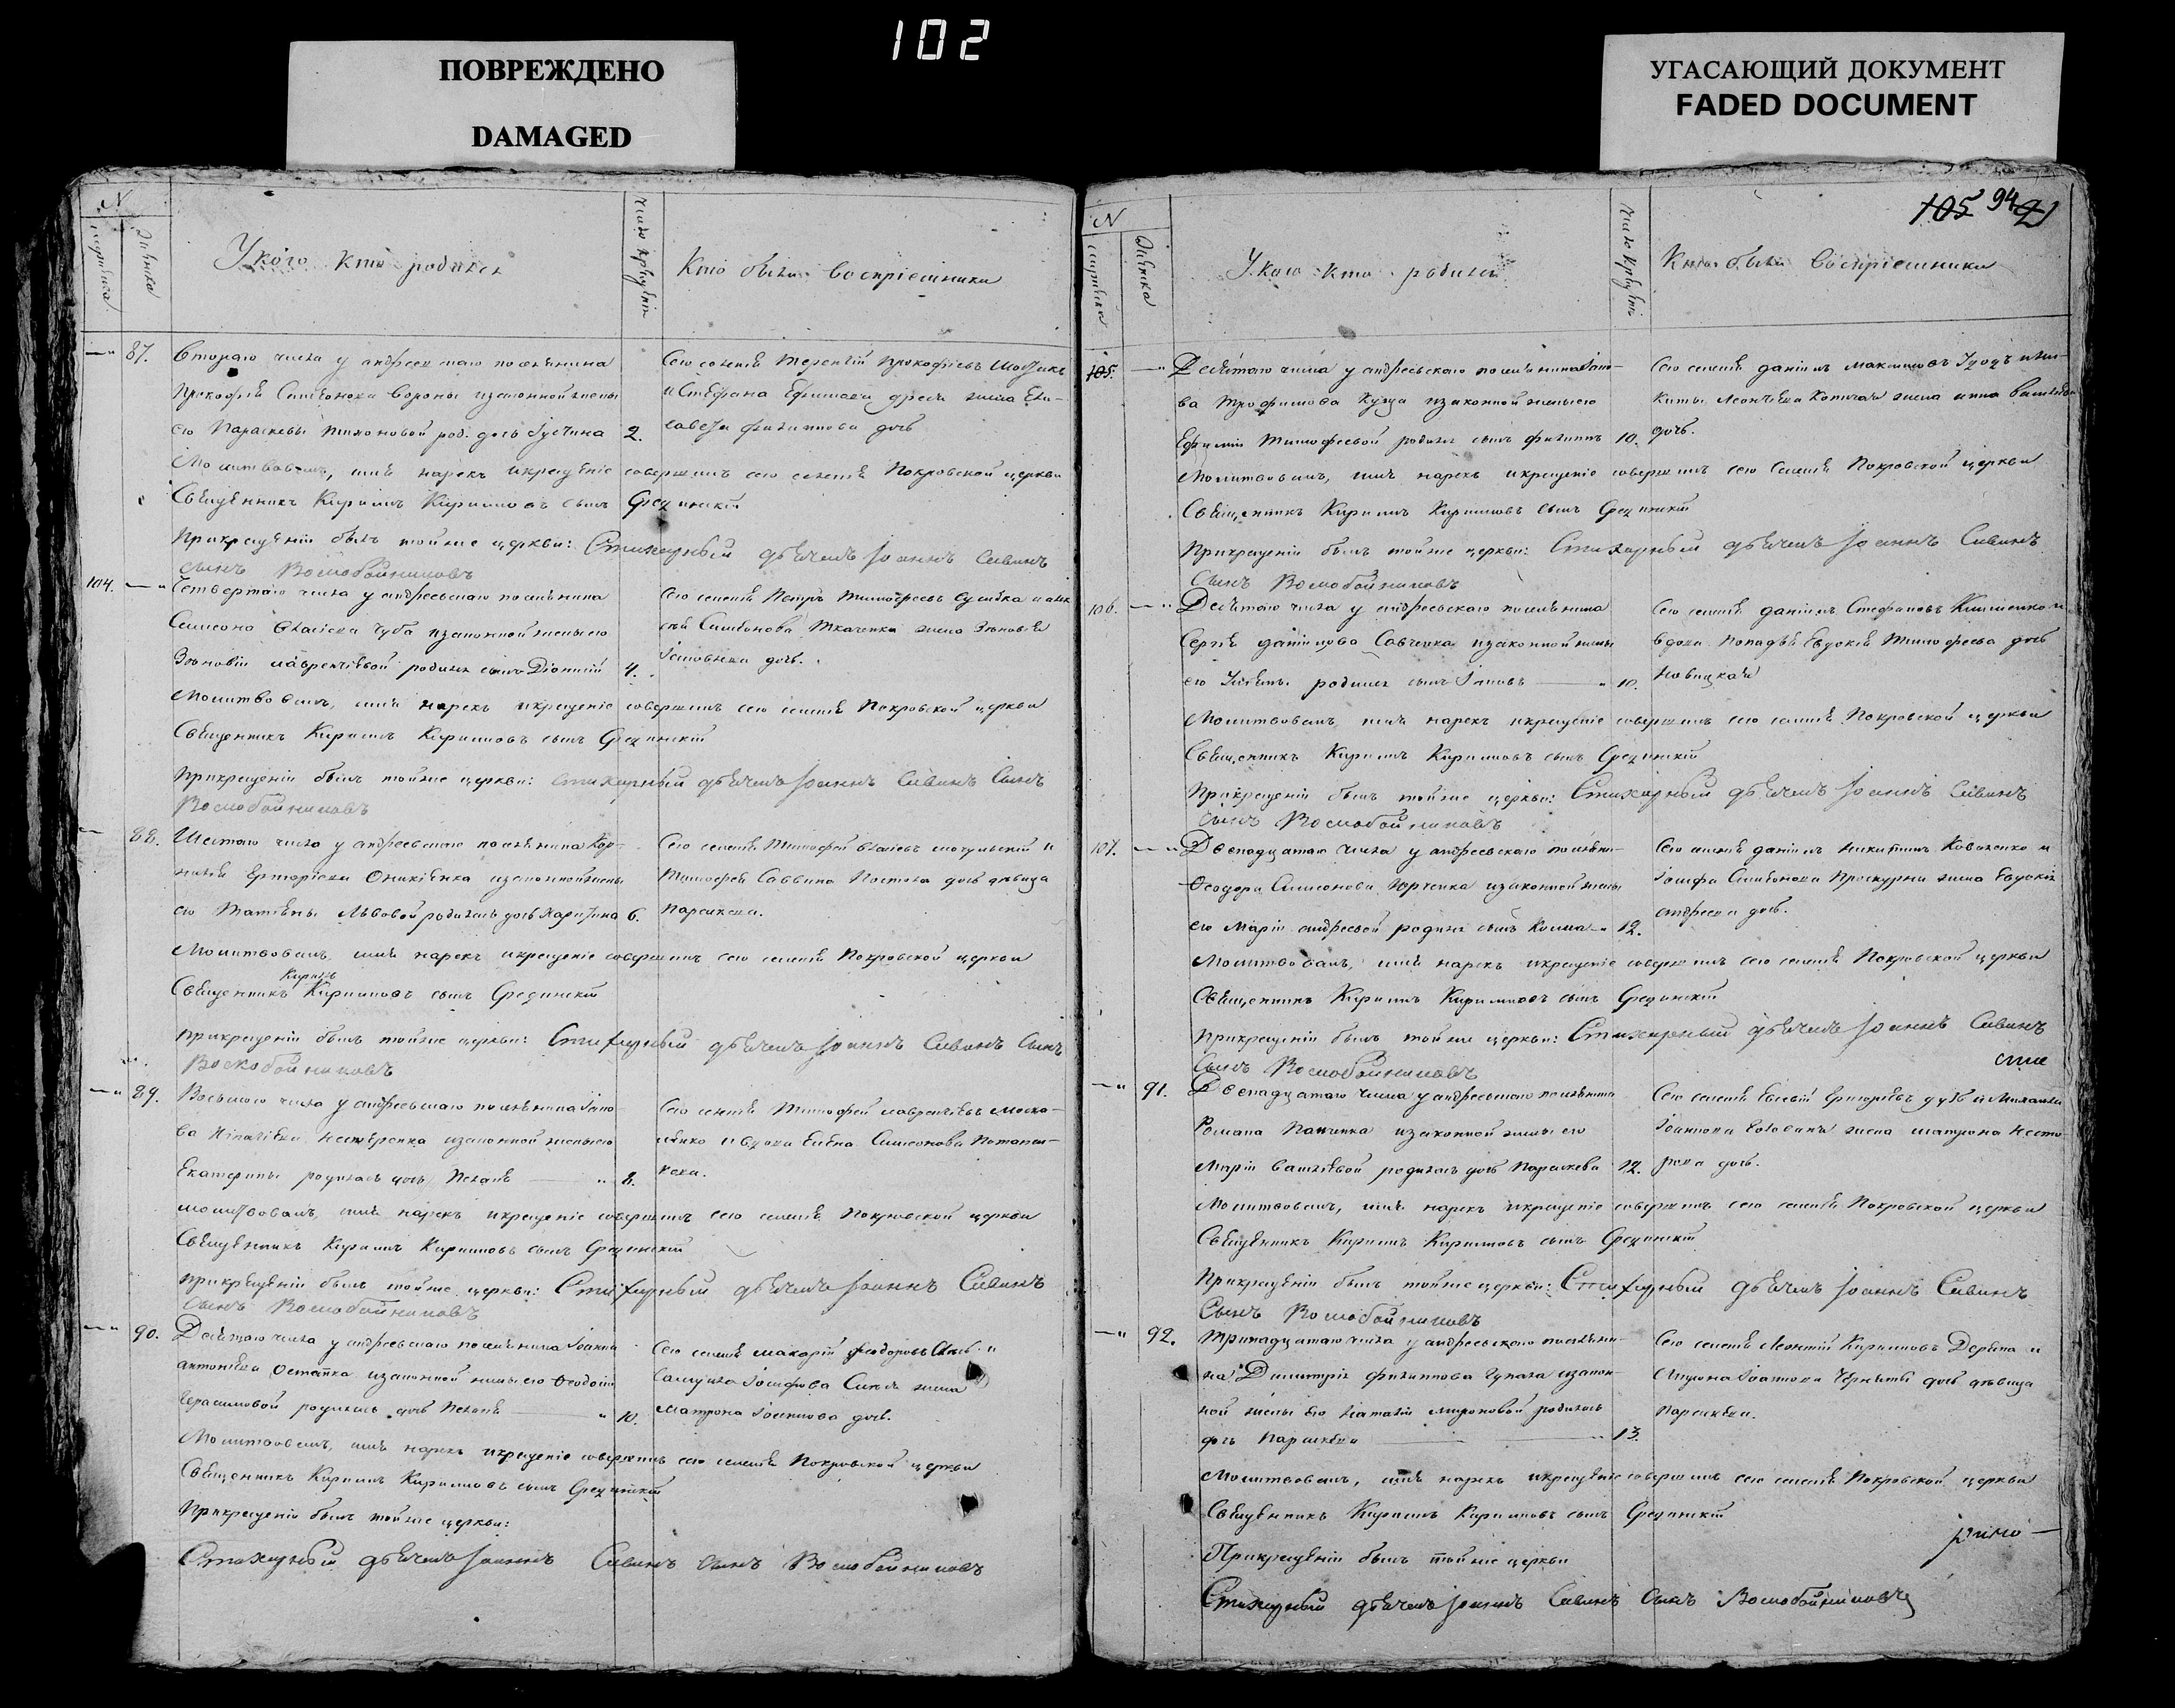 102
ПОВРЕЖДЕНО
DAMAGED
УГАСАЮЩИЙ ДОКУМЕНТ
FADED DOCUMENT
N
У кого кто родился
Кто были воспріемники
87. Втораго числа у андреевскаго поселянина
Прокофія Симеонова Вороны изаконной жены
его Параскевы роd. дочь Іустина 2.
Сего селенія Терентій Прокофіевъ
и Стефана Ефимова жена Ели-
савета Филиппова дочь
Молитвовалъ, имя нарекъ икрещеніе совершилъ сего селенія Покровской церкви
Священникъ Кириллъ Кирилловъ сынъ Срединскій
При крещеніи былъ тойже церкви: Стихарный дьячекъ Іоаннъ Савинъ
сынъ Воскобойниковъ
104. Четвертаго числа у андреевскаго поселянина
Самсона Власіева Чуба изаконной жены его
Зѣновіи Лаврентіевой родился сынъ Діонисій 4.
Сего селенія Петръ Тимофеевъ
Симеонова Ткаченка жена Зѣновія
дочь.
Молитвовалъ, имя нарекъ икрещеніе совершилъ сего селенія Покровской церкви
Священникъ Кириллъ Кирилловъ сынъ Срединскій
При крещеніи былъ тойже церкви: Стихарный дьячекъ Іоаннъ Савинъ Сынъ
Воскобойниковъ
88. Шестаго числа у андреевскаго поселянина Кор-
нилія Григоріева изаконной жены
его Татіяны Львовой родилась дочь Харитина 6.
Сего селенія Тимофей Власіевъ и
Тимофея Саввина дочь дѣвица
Параскева.
Молитвовалъ, имя нарекъ икрещеніе совершилъ сего селенія Покровской церкви
Кириллъ
Священникъ Кирилловъ сынъ Срединскій
При крещеніи былъ тойже церкви: Стихарный дьячекъ Іоаннъ Савинъ Сынъ
Воскобойниковъ
89. Восьмаго числа у андреевскаго поселянина Іако-
ва Игнатіева Нестеренка изаконной жены его
Екатерины родилась дочь Пелагія 8.
Сего селенія Тимофей Лаврентіевъ Моско-
ленко и вдова Елена Симеонова Потапен-
кова.
молитвовалъ, имя нарекъ икрещеніе совершилъ сего селенія Покровской церкви
Священникъ Кириллъ Кирилловъ сынъ Срединскій
При крещеніи былъ тойже церкви: Стихарный дьячекъ Іоаннъ Савинъ
Сынъ Воскобойниковъ
90. Десятаго числа у андреевскаго поселянина Іоанна
антоніева Остапка изаконной жены его Феодосіи
Герасимовой родилась дочь Пелагія 10.
Сего селенія Макарій Феодоровъ и
Самуила Іосифова жена
Матрона дочь.
Молитвовалъ, имя нарекъ икрещеніе совершилъ сего селенія Покровской церкви
Священникъ Кириллъ Кирилловъ сынъ Срединскій
При крещеніи былъ тойже церкви:
Стихарный дьячекъ Іоаннъ Савинъ сынъ Воскобойниковъ
105 94
N
У кого кто родился
Кто были воспріемники
105. Десятаго числа у андреевскаго поселянина Іако-
ва Трофимова изаконной жены его
Ефиміи Тимофеевой родился сынъ Филиппъ 10.
Сего селенія Даніилъ Максимовъ и Ни-
киты Леонтіева жена Анна Васильева
дочь.
Молитвовалъ, имя нарекъ икрещеніе совершилъ сего селенія Покровской церкви
Священникъ Кириллъ Кирилловъ сынъ Срединскій
При крещеніи былъ тойже церкви: Стихарный дьячекъ Іоаннъ Савинъ
Сынъ Воскобойниковъ
106. Десятаго числа у андреевскаго поселянина
Сергія Даніилова Савченка изаконной жены
его родился сынъ Іаковъ 10.
Сего селенія Даніилъ Стефановъ Клименко и
вдова Попадья Евдокія Тимофеева дочь
Новицкая
Молитвовалъ, имя нарекъ икрещеніе совершилъ сего селенія Покровской церкви
Священникъ Кириллъ Кирилловъ сынъ Срединскій
При крещеніи былъ тойже церкви: Стихарный дьячекъ Іоаннъ Савинъ
сынъ Воскобойниковъ
107. Двенадцатаго числа у андреевскаго поселяни-
Феодора Симеонова Юрченка изаконной жены
его Маріи андреевой родился сынъ Косма 12.
Сего селенія Даніилъ Никитинъ Коваленко и
Іосифа Симеонова Проскурни жена Евдокія
андреева дочь.
Молитвовалъ, имя нарекъ икрещеніе совершилъ сего селенія Покровской церкви
Священникъ Кириллъ Кирилловъ сынъ Срединскій
При крещеніи былъ тойже церкви: Стихарный дьячекъ Іоаннъ Савинъ
Сынъ Воскобойниковъ
91. Двенадцатаго числа у андреевскаго поселянина
Романа изаконной жены его
Маріи Васильевой родилась дочь Параскева 12.
Сего селенія Евсевій Григоріевъ и Михаила
Іоаннова жена Матрона Несто-
рова дочь.
Молитвовалъ, имя нарекъ икрещеніе совершилъ сего селенія Покровской церкви
Священникъ Кириллъ Кирилловъ сынъ Срединскій
При крещеніи былъ тойже церкви: Стихарный дьячекъ Іоаннъ Савинъ
Сынъ Воскобойниковъ
92. Тринадцатаго числа у андреевскаго поселяни-
на Димитрія Филиппова изакон-
ной жены его Наталіи Мироновой родилась
дочь Параскева 13.
Сего селенія Леонтій Кирилловъ и
Іоаннова дочь дѣвица
Параскева.
Молитвовалъ, имя нарекъ икрещеніе совершилъ сего селенія Покровской церкви
Священникъ Кириллъ Кирилловъ сынъ Срединскій
При крещеніи былъ тойже церкви
Стихарный дьячекъ Іоаннъ Савинъ сынъ Воскобойниковъ